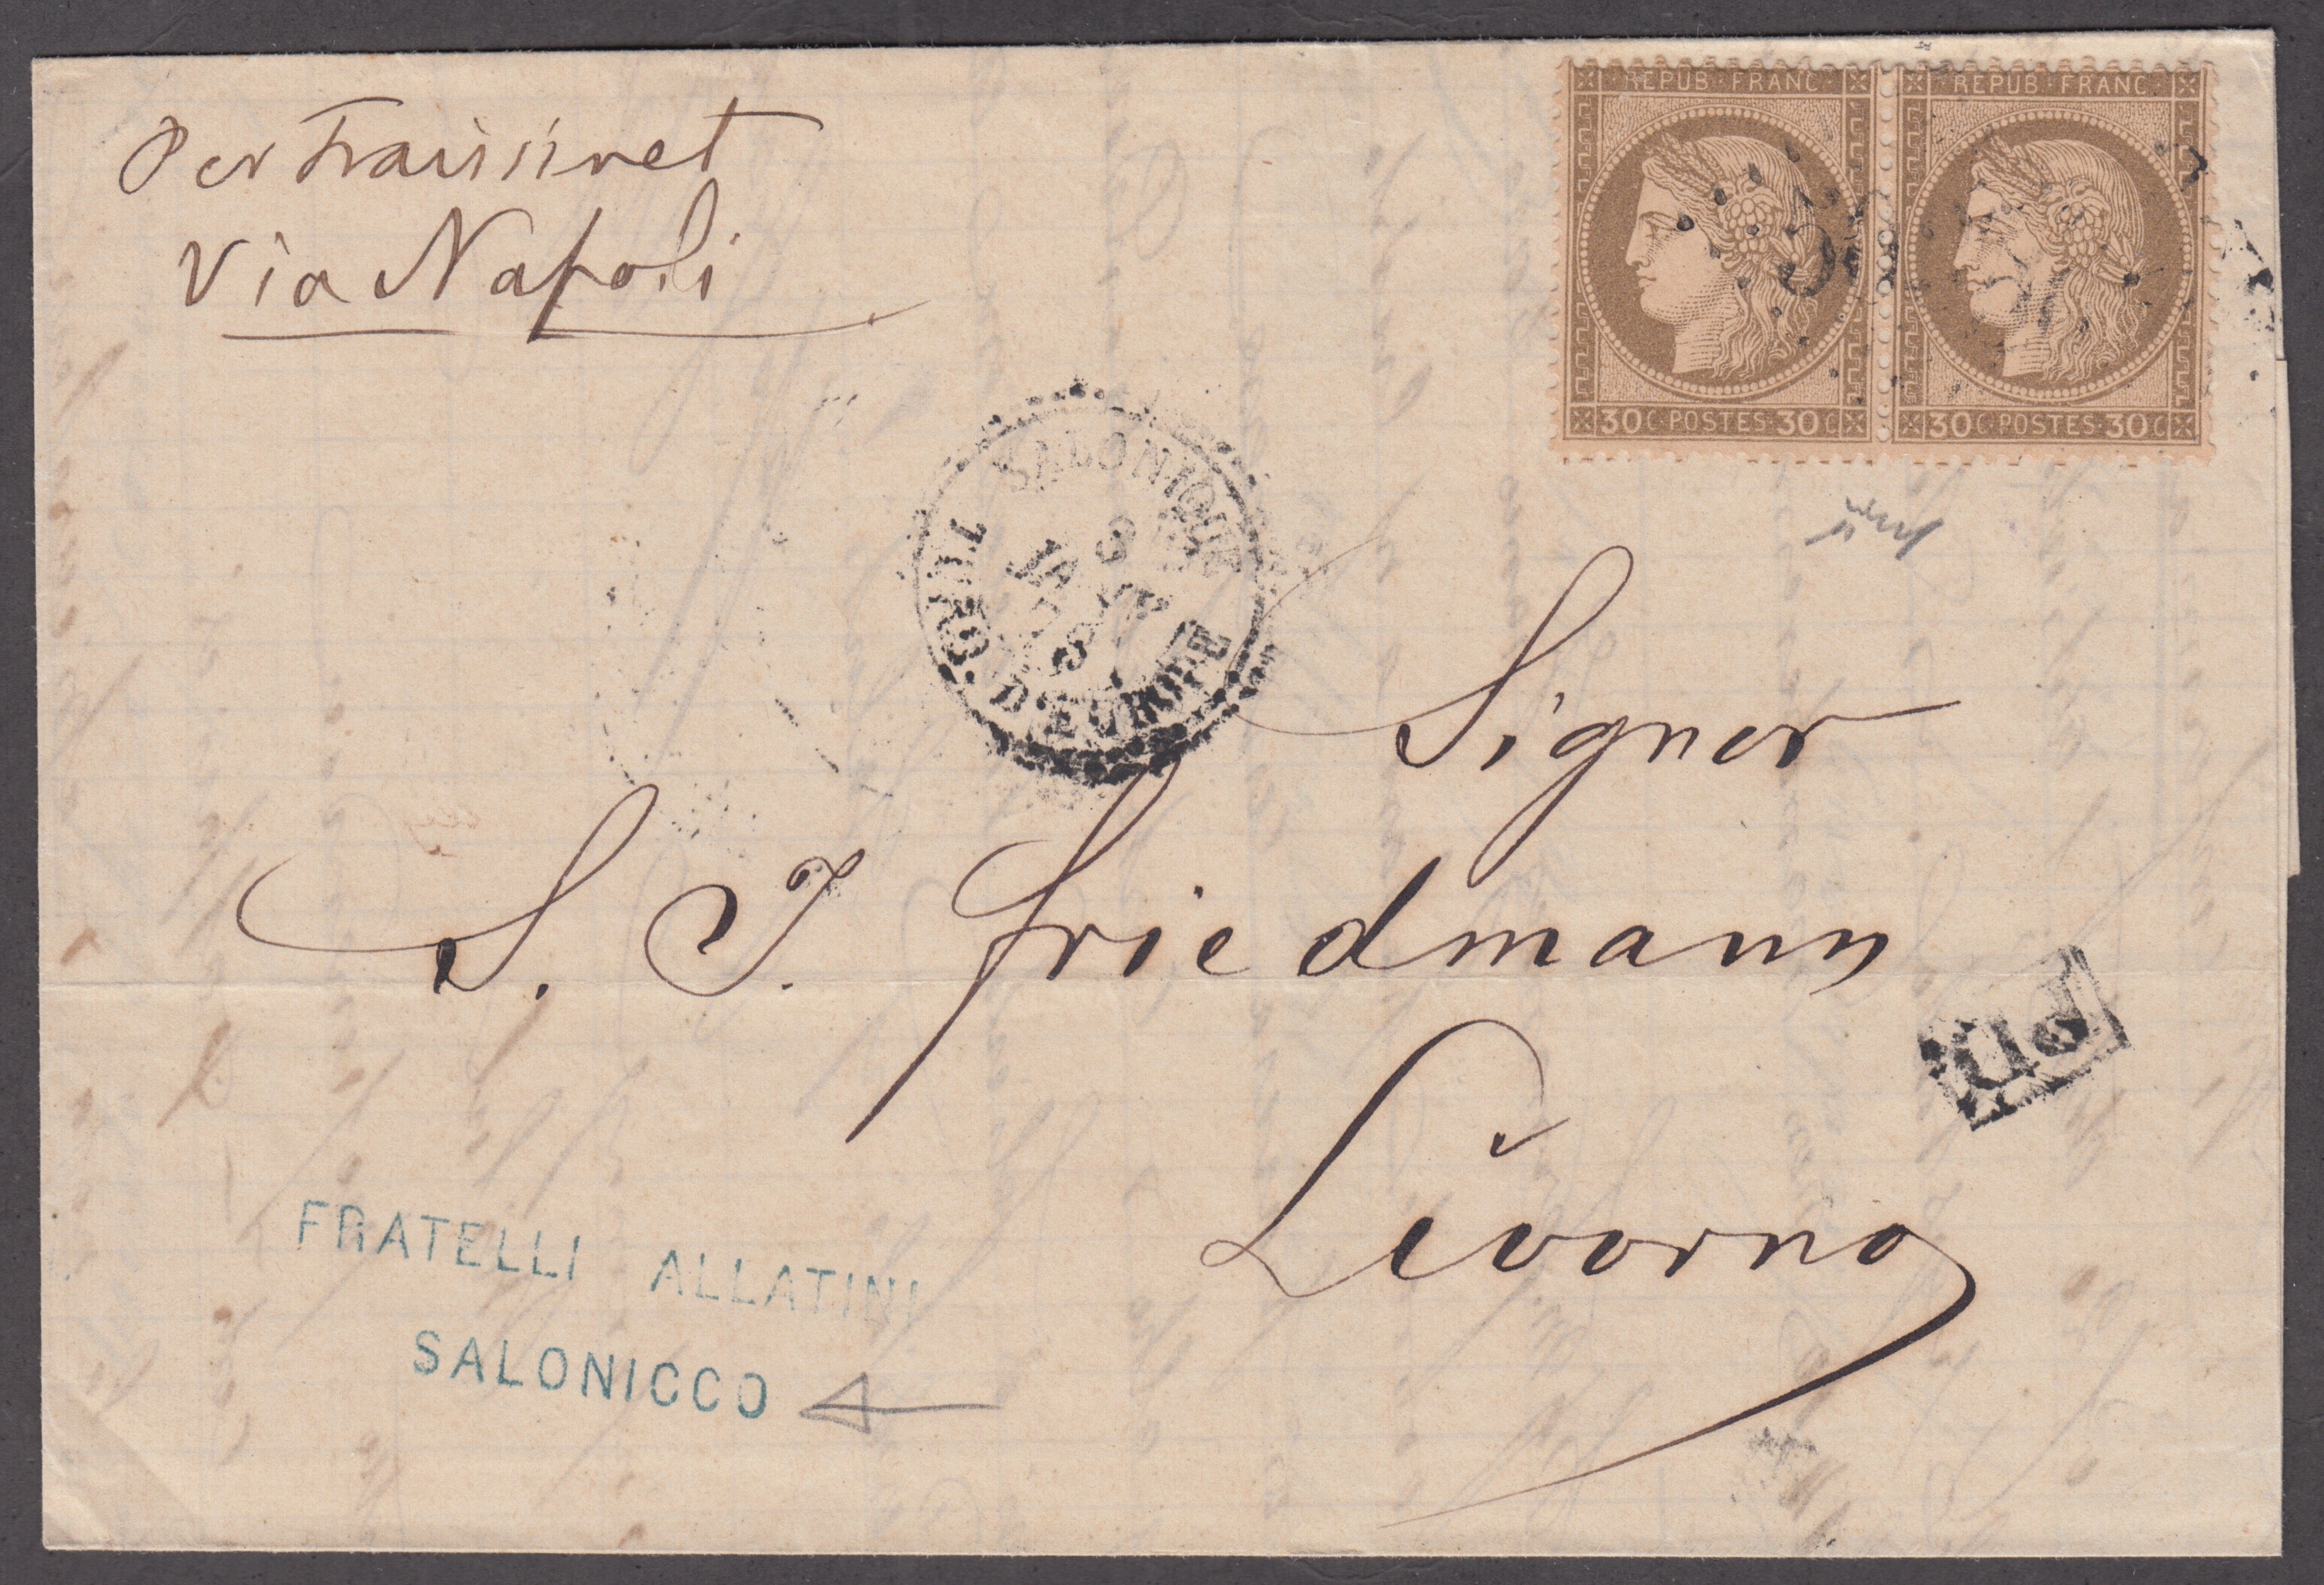 Per Fraissinet
Via Napoli
REPUB·FRANC
30C·POSTES·30C
REPUB·FRANC
30C·POSTES·30C
SALONIQUE
TURQ.
D'EUROPE
Signor
S. J. Friedmann
PD
Livorno
FRATELLI ALLATINI
SALONICCO